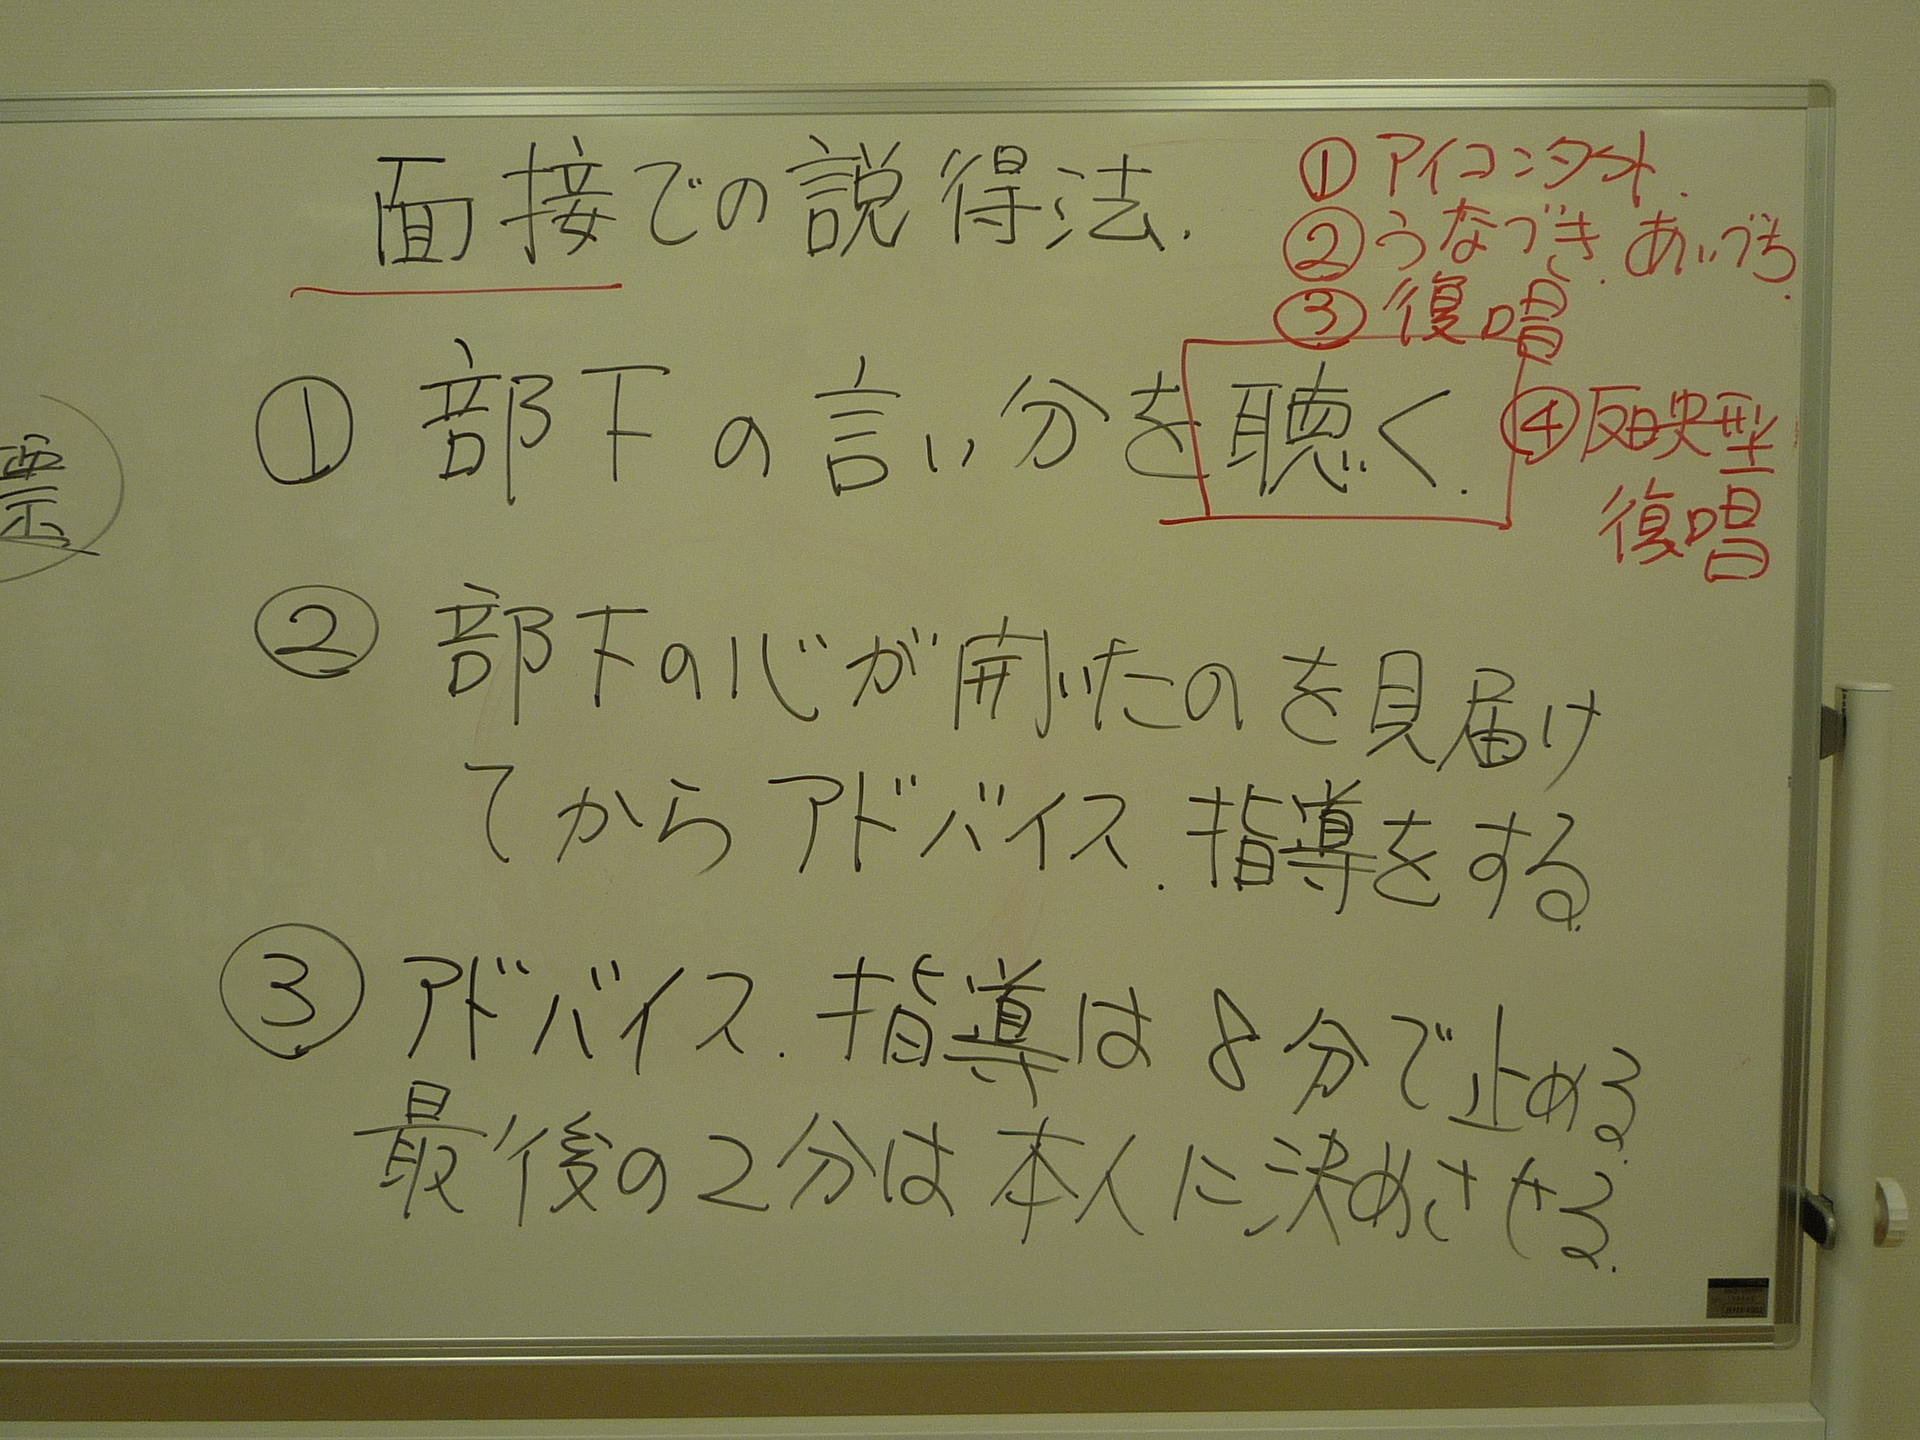 面接での説得法.
① アイコンタクト.
② うなづき. あいづち.
③ 復唱
① 部下の言い分を聴く.
④ 反映型
復唱
票
② 部下の心が開いたのを見届け
てからアドバイス.指導をする.
③ アドバイス.指導は8分で止める.
最後の2分は本人に決めさせる.